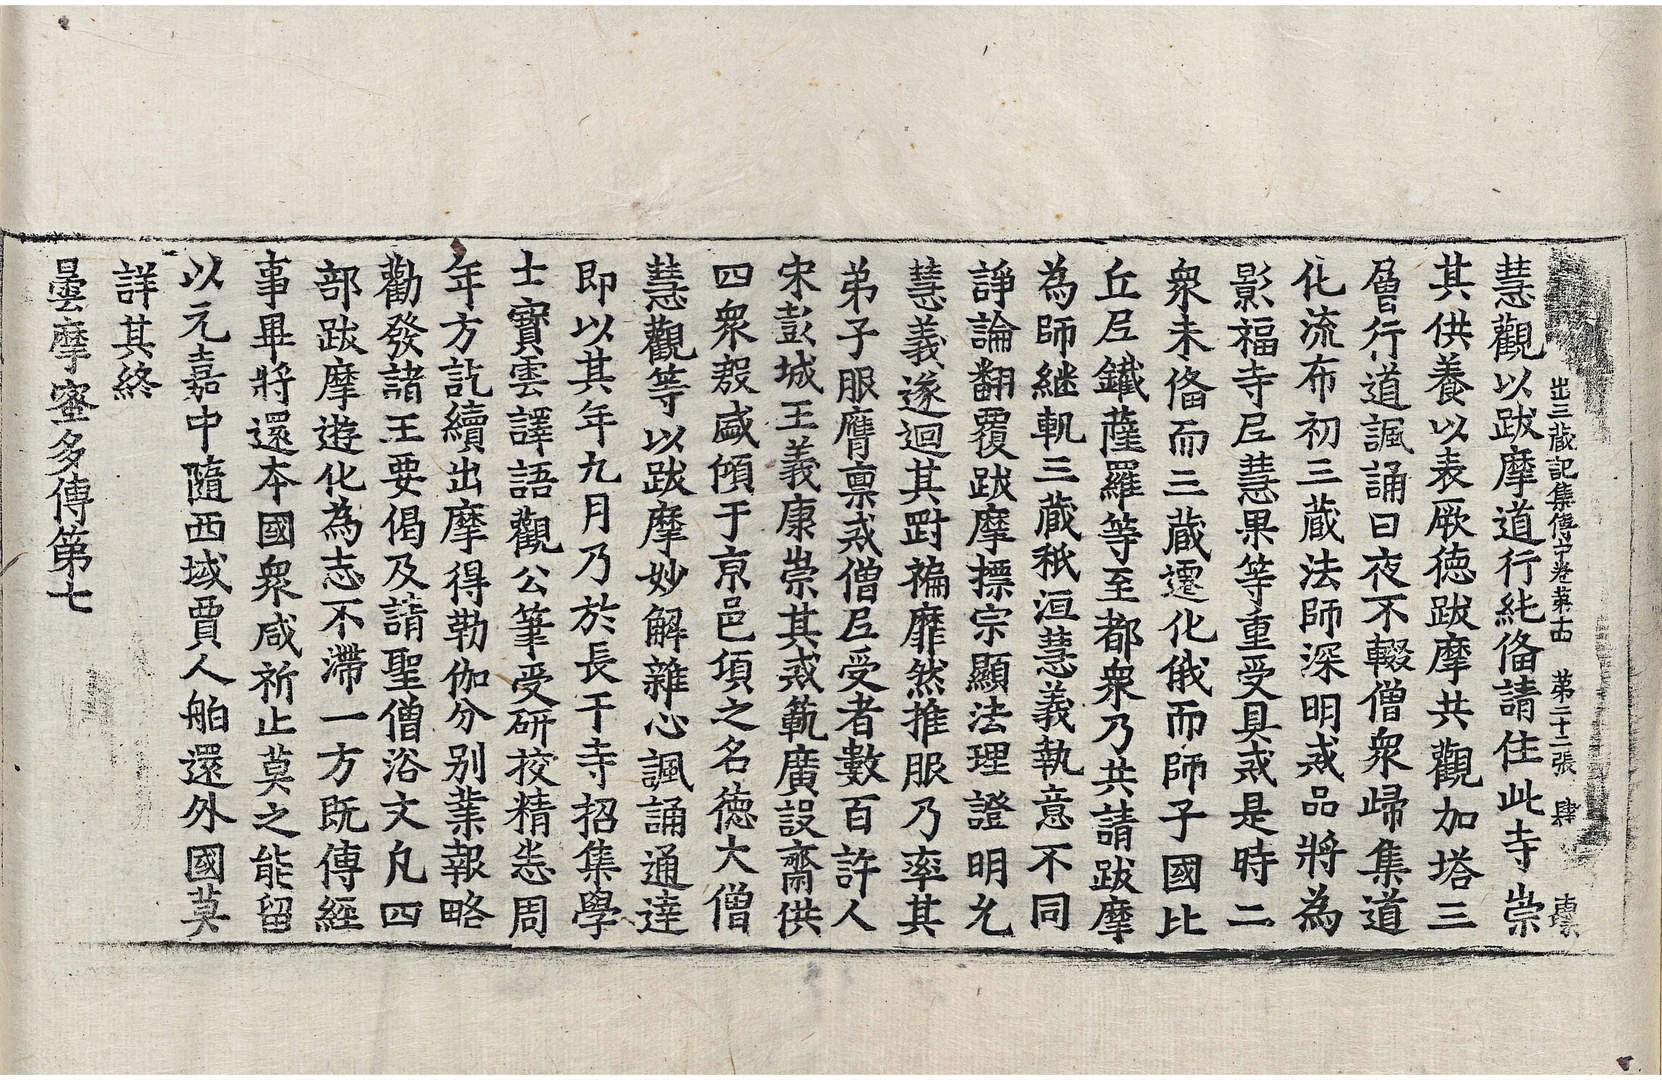 出三藏記集傳中卷第十四 第二十二張 肆
慧觀以跋摩道行純俻請住此寺崇
其供養以表厥德跋摩共觀加塔三
層行道諷誦日夜不輟僧衆歸集道
化流布初三藏法師深明戒品將為
影福寺尼慧果等重受具戒是時二
衆未俻而三藏遷化俄而師子國比
丘尼鐵薩羅等至都衆乃共請跋摩
為師継軌三藏秖洹慧義執意不同
諍論翻覆跋摩摽宗顯法理證明允
慧義遂迴其㓰褊靡然推服乃率其
弟子服膺禀戒僧尼受者數百許人
宋彭城王義康崇其戒範廣設齋供
四衆殷盛傾于京邑項之名德大僧
慧觀等以跋摩妙解雜心諷誦通達
即以其年九月乃於長干寺招集學
士寶雲譯語觀公筆受研挍精悉周
年方訖續出摩得勒伽分别業報略
勸發諸王要偈及請聖僧浴文凢四
部跋摩遊化為志不滯一方既傳經
事畢將還夲國衆咸祈止莫之能留
以元嘉中隨西域賈人舶還外國莫
詳其終
曇摩蜜多傳第七